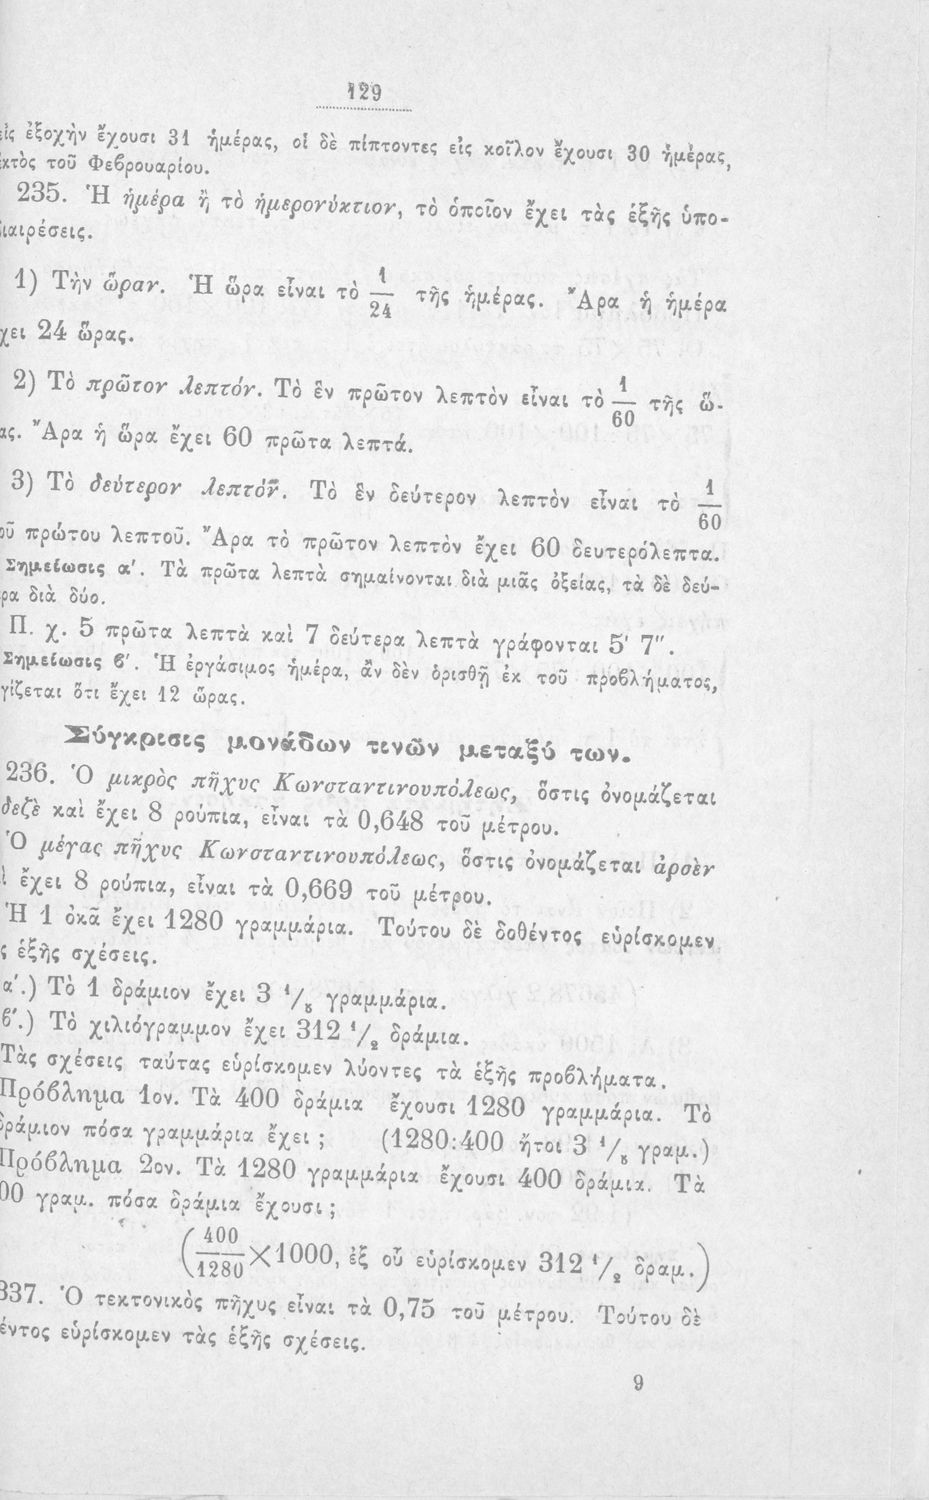 129
εἰς ἐξοχὴν ἔχουσι 31 ἡμέρας, οἱ δὲ πίπτοντες εἰς κοῖλον ἔχουσι 30 ἡμέρας,
κτὸς τοῦ Φεβρουαρίου.
235. Ἡ ἡμέρα ἢ τὸ ἡμερονύκτιον, τὸ ὁποῖον ἔχει τὰς ἑξῆς ὑπο-
διαιρέσεις.
1) Τὴν ὥραν. Ἡ ὥρα εἶναι τὸ 1/24 τῆς ἡμέρας. Ἄρα ἡ ἡμέρα
χει 24 ὥρας.
2) Τὸ πρῶτον λεπτόν. Τὸ ἓν πρῶτον λεπτὸν εἶναι τὸ 1/60 τῆς ὥ-
ας. Ἄρα ἡ ὥρα ἔχει 60 πρῶτα λεπτά.
3) Τὸ δεύτερον λεπτόν. Τὸ ἓν δεύτερον λεπτὸν εἶναι τὸ 1/60
οῦ πρώτου λεπτοῦ. Ἄρα τὸ πρῶτον λεπτὸν ἔχει 60 δευτερόλεπτα.
Σημείωσις α′. Τὰ πρῶτα λεπτὰ σημαίνονται διὰ μιᾶς ὀξείας, τὰ δὲ δεύ-
ρα διὰ δύο.
Π. χ. 5 πρῶτα λεπτὰ καὶ 7 δεύτερα λεπτὰ γράφονται 5′ 7″.
Σημείωσις β′. Ἡ ἐργάσιμος ἡμέρα, ἂν δὲν ὁρισθῇ ἐκ τοῦ προβλήματος,
γίζεται ὅτι ἔχει 12 ὥρας.
Σύγκρισις μονάδων τινῶν μεταξύ των.
236. Ὁ μικρὸς πῆχυς Κωνσταντινουπόλεως, ὅστις ὀνομάζεται
δεζὲ καὶ ἔχει 8 ρούπια, εἶναι τὰ 0,648 τοῦ μέτρου.
Ὁ μέγας πῆχυς Κωνσταντινουπόλεως, ὅστις ὀνομάζεται ἀρσὲν
ὶ ἔχει 8 ρούπια, εἶναι τὰ 0,669 τοῦ μέτρου.
Ἡ 1 ὀκᾶ ἔχει 1280 γραμμάρια. Τούτου δὲ δοθέντος εὑρίσκομεν
ς ἑξῆς σχέσεις.
α′.) Τὸ 1 δράμιον ἔχει 3 1/5 γραμμάρια.
β′.) Τὸ χιλιόγραμμον ἔχει 312 1/2 δράμια.
Τὰς σχέσεις ταύτας εὑρίσκομεν λύοντες τὰ ἑξῆς προβλήματα.
Πρόβλημα 1ον. Τὰ 400 δράμια ἔχουσι 1280 γραμμάρια. Τὸ
δράμιον πόσα γραμμάρια ἔχει; (1280:400 ἤτοι 3 1/5 γραμ.)
Πρόβλημα 2ον. Τὰ 1280 γραμμάρια ἔχουσι 400 δράμια. Τὰ
00 γραμ. πόσα δράμια ἔχουσι;
(400/1280 × 1000, ἐξ οὗ εὑρίσκομεν 312 1/2 δραμ.)
337. Ὁ τεκτονικὸς πῆχυς εἶναι τὰ 0,75 τοῦ μέτρου. Τούτου δὲ
έντος εὑρίσκομεν τὰς ἑξῆς σχέσεις.
9